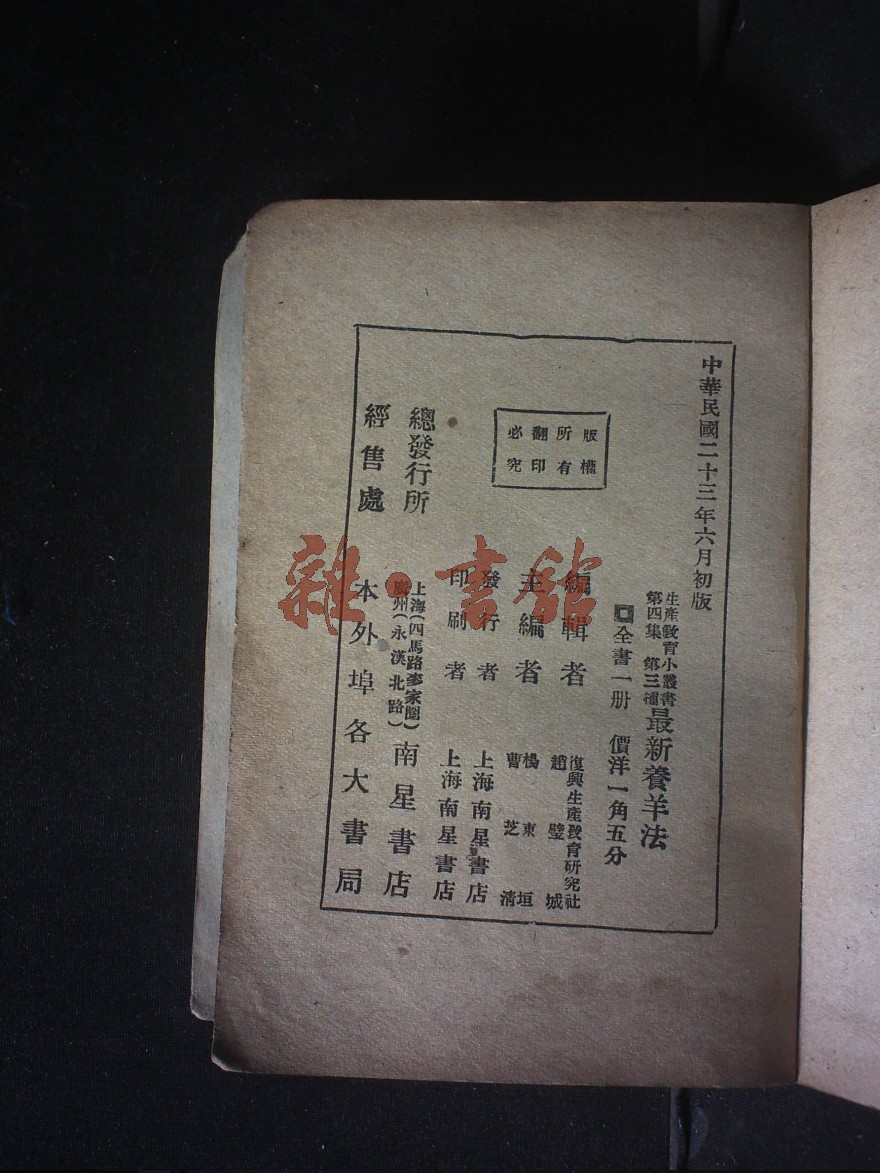 中華民國二十三年六月初版
生產敎育小叢書
第四集 第三種
最新養羊法
全書一册 價洋一角五分
版權
所有
翻印
必究
編輯者 復興生產敎育研究社
趙璧城
主編者 楊東垣
曹芝清
發行者 上海南星書店
印刷者 上海南星書店
總發行所 上海(四馬路麥家圈)
廣州(永漢北路)
南星書店
經售處 本外埠各大書局
雜·書館